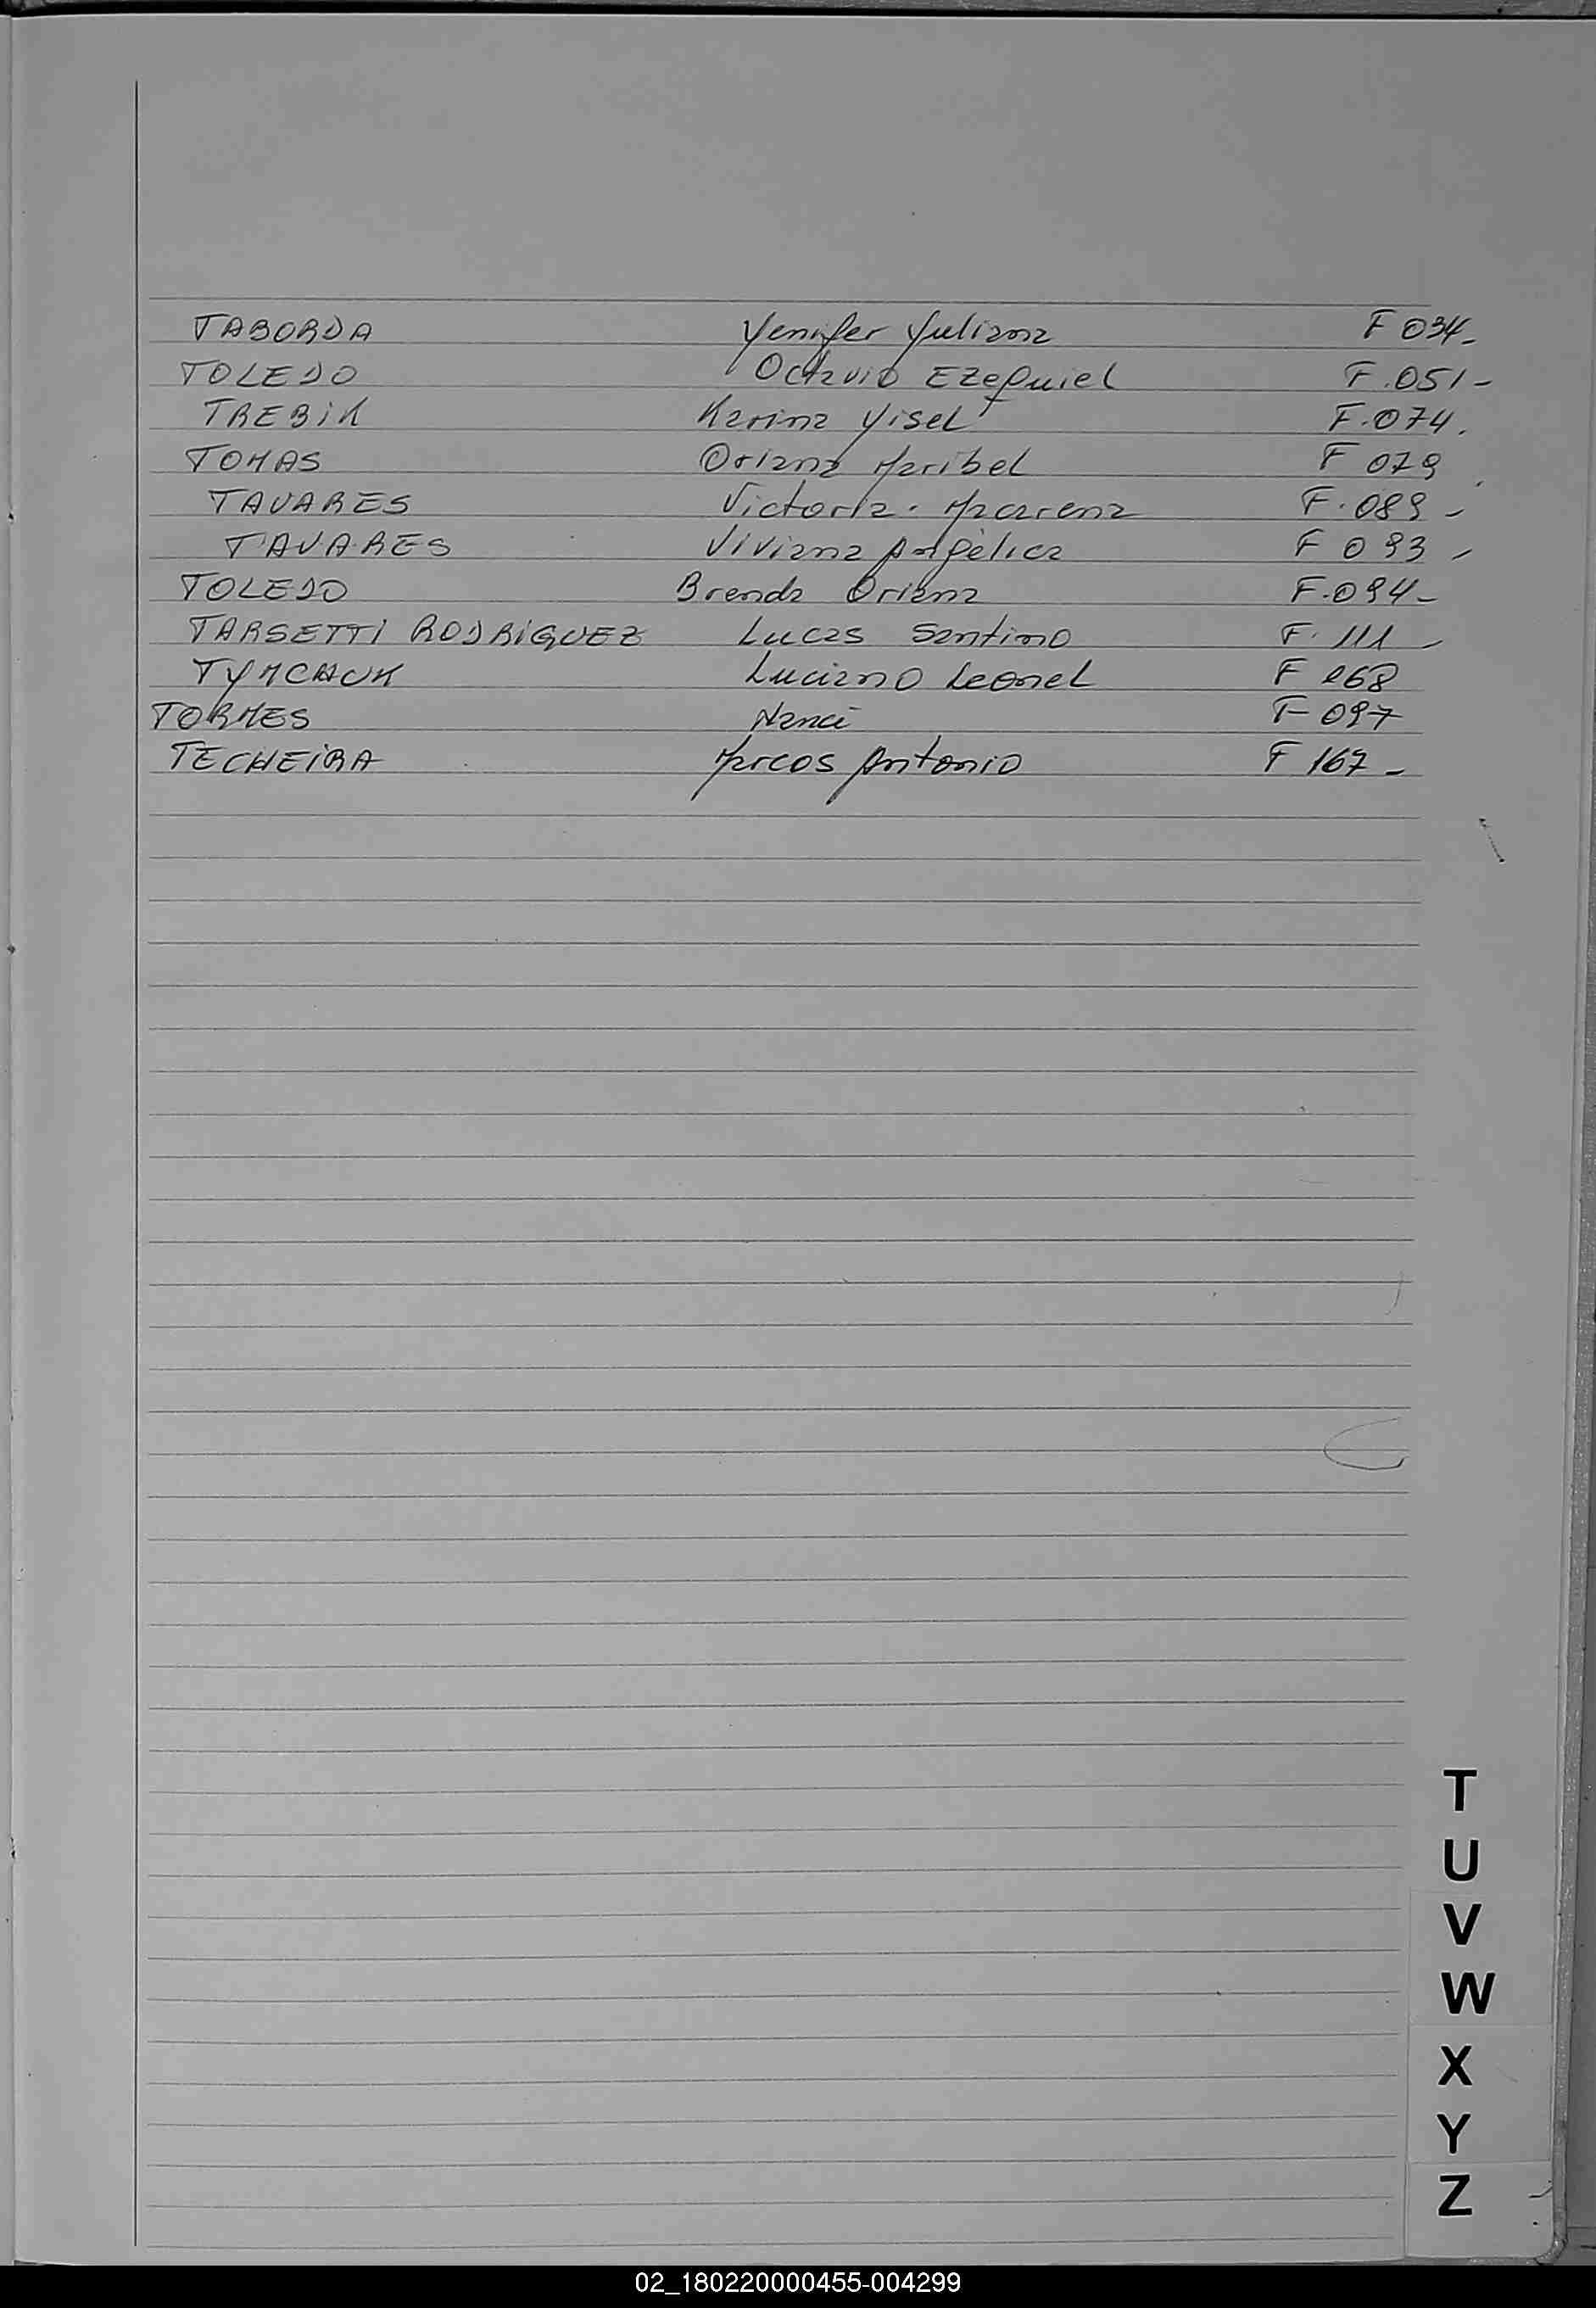 TABORDA Yenifer Yuliana F 034-
TOLEDO Octavio Ezequiel F.051-
TREBIK Karina Yisel F.074.
TOMAS Oriana Maribel F 079
TAVARES Victoria. Macarena F.089-
TAVARES Viviana Angèlica F 093-
TOLEDO Brenda Oriana F.094-
TARSETTI RODRIGUEZ Lucas Santino F. 111-
TYMCHUK Luciano Leonel F 168
TORMES Nanci F 097
TECHEIRA Marcos Antonio F 167-
T
U
V
W
X
Y
Z
02_180220000455-004299